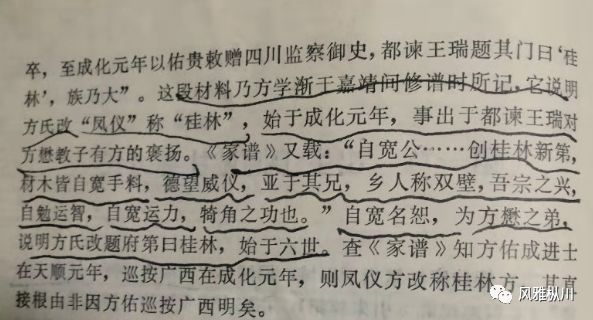 卒，至成化元年以佑贵敕赠四川监察御史，都谏王瑞题其门曰‘桂
林’，族乃大”。这段材料乃方学渐于嘉靖间修谱时所记，它说明
方氏改“凤仪”称“桂林”，始于成化元年，事出于都谏王瑞对
方懋教子有方的褒扬。《家谱》又载：“自宽公……创桂林新第，
材木皆自宽手料，德望威仪，亚于其兄，乡人称双璧，吾宗之兴，
自勉运智，自宽运力，犄角之功也。”自宽名恕，为方懋之弟，
说明方氏改题府第曰桂林，始于六世。查《家谱》知方佑成进士
在天顺元年，巡按广西在成化元年，则凤仪方改称桂林方，其直
接根由非因方佑巡按广西明矣。
风雅枞川